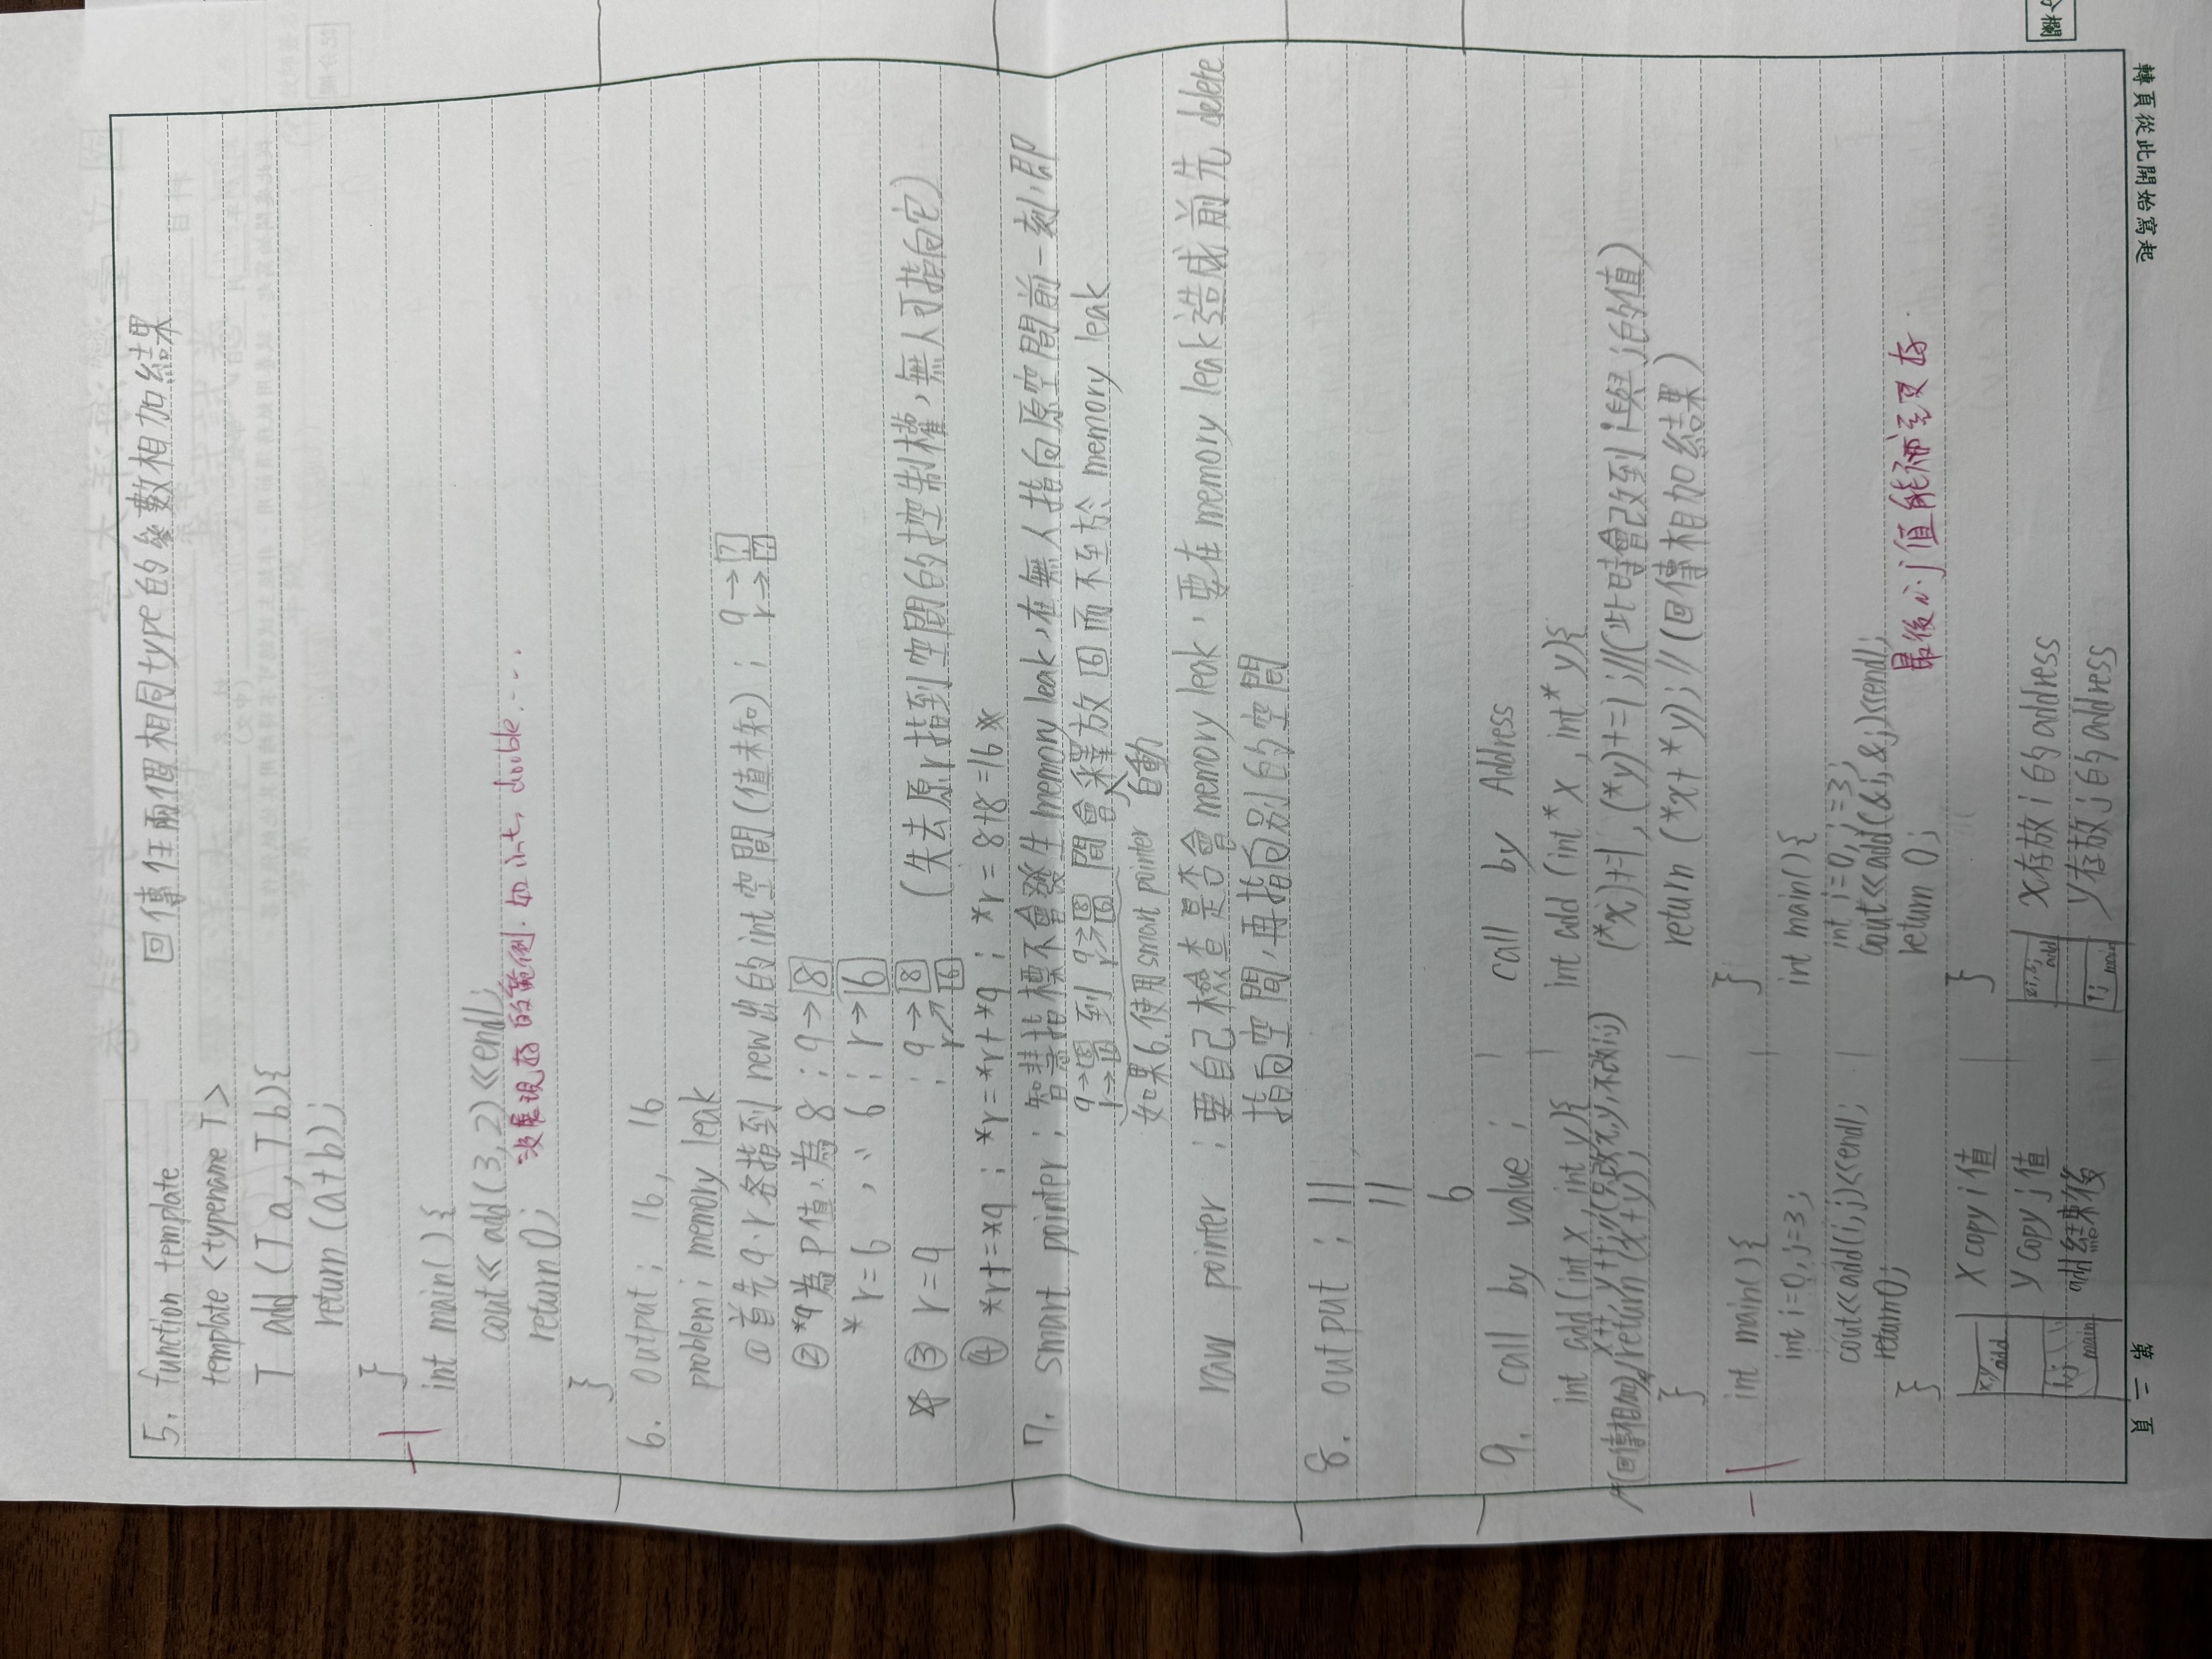 5. function template 回傳任兩個相同type的參數相加結果
template <typename T>
T add (T a, T b){
return (a+b);
}
-1
int main( ){
cout<< add(3,2)<<endl;
return 0;
沒展現 的範例. 如 int, double. ...
}
6. output : 16, 16
problem : memory leak
① 首先q.r各指到 new出的int空間(值未知) ; q→?
r→?
② *q為P值,為8 ; q→8
*r=6 , 〃 6 ; r→6
☆ ③ r=q ; q→8 (失去原r指到空間的控制權,無人可指向它)
r↗ 6
④ *r+=*q ; *r=*r+*q ; *r = 8+8=16 ※
7. smart pointer : 智慧指標不會發生memory leak,在無人指向原空間前一刻,即
q→8 到 q→8 間會釋放 6 而不至於 memory leak
r→6 r↗6
如果6.使用smart pointer 自動
raw pointer : 要自己檢查是否會memory leak, 要在memory leak造成前先 delete
指向空間,再指向別的空間
8. output : 11
11
6
9. call by value :
int add(int x, int y){
x++, y++;//(只改x,y,不改i,j)
/*(回傳相加)*/return (x+y);
}
-1
int main(){
int i=0, j=3;
cout<<add(i,j)<<endl;
return 0;
}
x,y add
i,j main
X copy i 值
y copy j 值
add結束後
call by Address
int add (int* x, int* y){
(*x)+=1, (*y)+=1;//(此時會改到i與j的值)
return (*x+*y);//(回傳相加結果)
}
int main(){
int i=0, j=3;
cout<<add(&i,&j)<<endl;
return 0;
最後 i.j 值能
}
&i,&j add
i j main
x存放 i 的address
y存放 j 的address
第二頁
轉頁從此開始寫起
國立臺灣海洋大學 考試卷